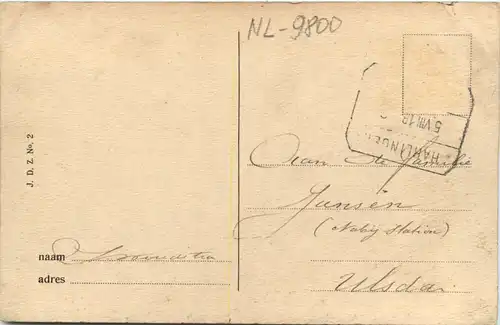 NL-9800
HARLINGEN
5 VIII 18
Aan de Familie
Jansen
(nabij Station)
J. D. Z. No. 2
naam
adres